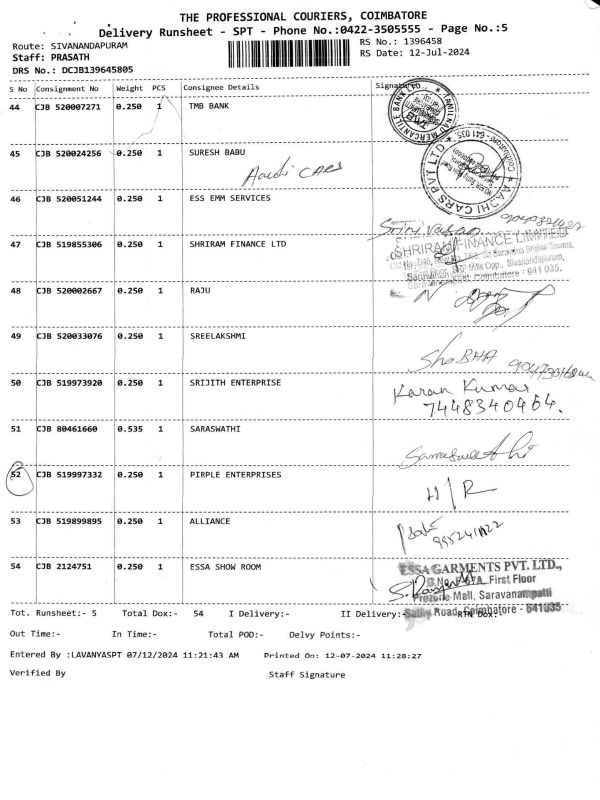 THE PROFESSIONAL COURIERS, COIMBATORE
Delivery Runsheet - SPT - Phone No.:0422-3505555 - Page No.:5
Route: SIVANANDAPURAM
RS No.: 1396458
Staff: PRASATH
RS Date: 12-Jul-2024
DRS No.: DCJB139645805
S No Consignment No Weight PCS Consignee Details Signature
44 CJB 520007271 0.250 1 TMB BANK
TAMILNAD MERCANTILE BANK
TMB
45 CJB 520024256 0.250 1 SURESH BABU
Aadi CARS
AADHI CARS PVT LTD
Coimbatore - 641 035.
46 CJB 520051244 0.250 1 ESS EMM SERVICES
47 CJB 519855306 0.250 1 SHRIRAM FINANCE LTD
SHRIRAM FINANCE LIMITED
Mills Opp., Sivanandapuram,
Saravanampatti, Coimbatore - 641 035.
48 CJB 520002667 0.250 1 RAJU
49 CJB 520033076 0.250 1 SREELAKSHMI
ShoBHA
50 CJB 519973920 0.250 1 SRIJITH ENTERPRISE
Karan Kumar
7448340464.
51 CJB 80461660 0.535 1 SARASWATHI
52 CJB 519997332 0.250 1 PIRPLE ENTERPRISES
H/R
53 CJB 519899895 0.250 1 ALLIANCE
54 CJB 2124751 0.250 1 ESSA SHOW ROOM
ESSA GARMENTS PVT. LTD.,
First Floor
Prozone Mall, Saravanampatti
Sathy Road, Coimbatore - 641035
Tot. Runsheet:- 5 Total Dox:- 54 I Delivery:- II Delivery:- RTN Dox:-
Out Time:- In Time:- Total POD:- Delvy Points:-
Entered By :LAVANYASPT 07/12/2024 11:21:43 AM Printed On: 12-07-2024 11:28:27
Verified By Staff Signature